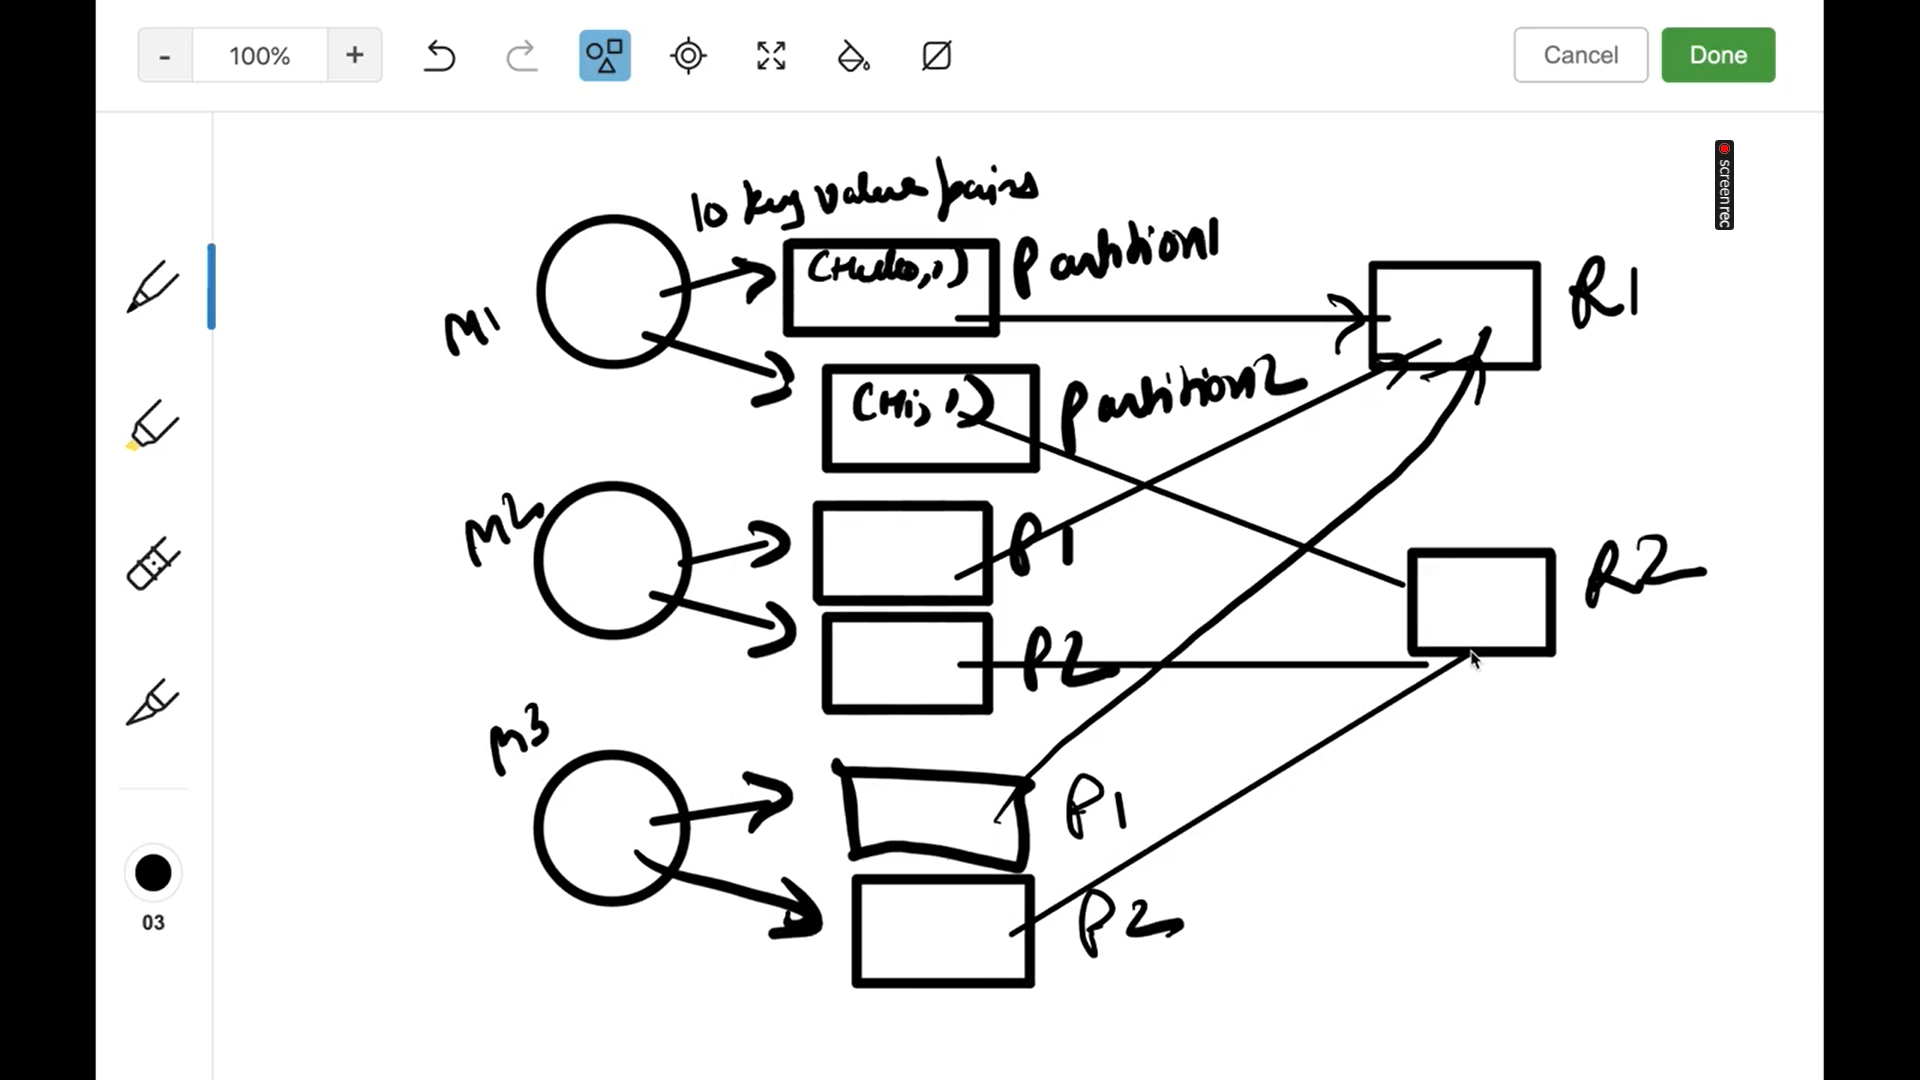 - 100% +
Cancel
Done
screenrec
10 key value pairs
(Hello, 1)
Partition1
M1
R1
(Hi, 1)
Partition2
M2
P1
R2
P2
M3
P1
P2
03